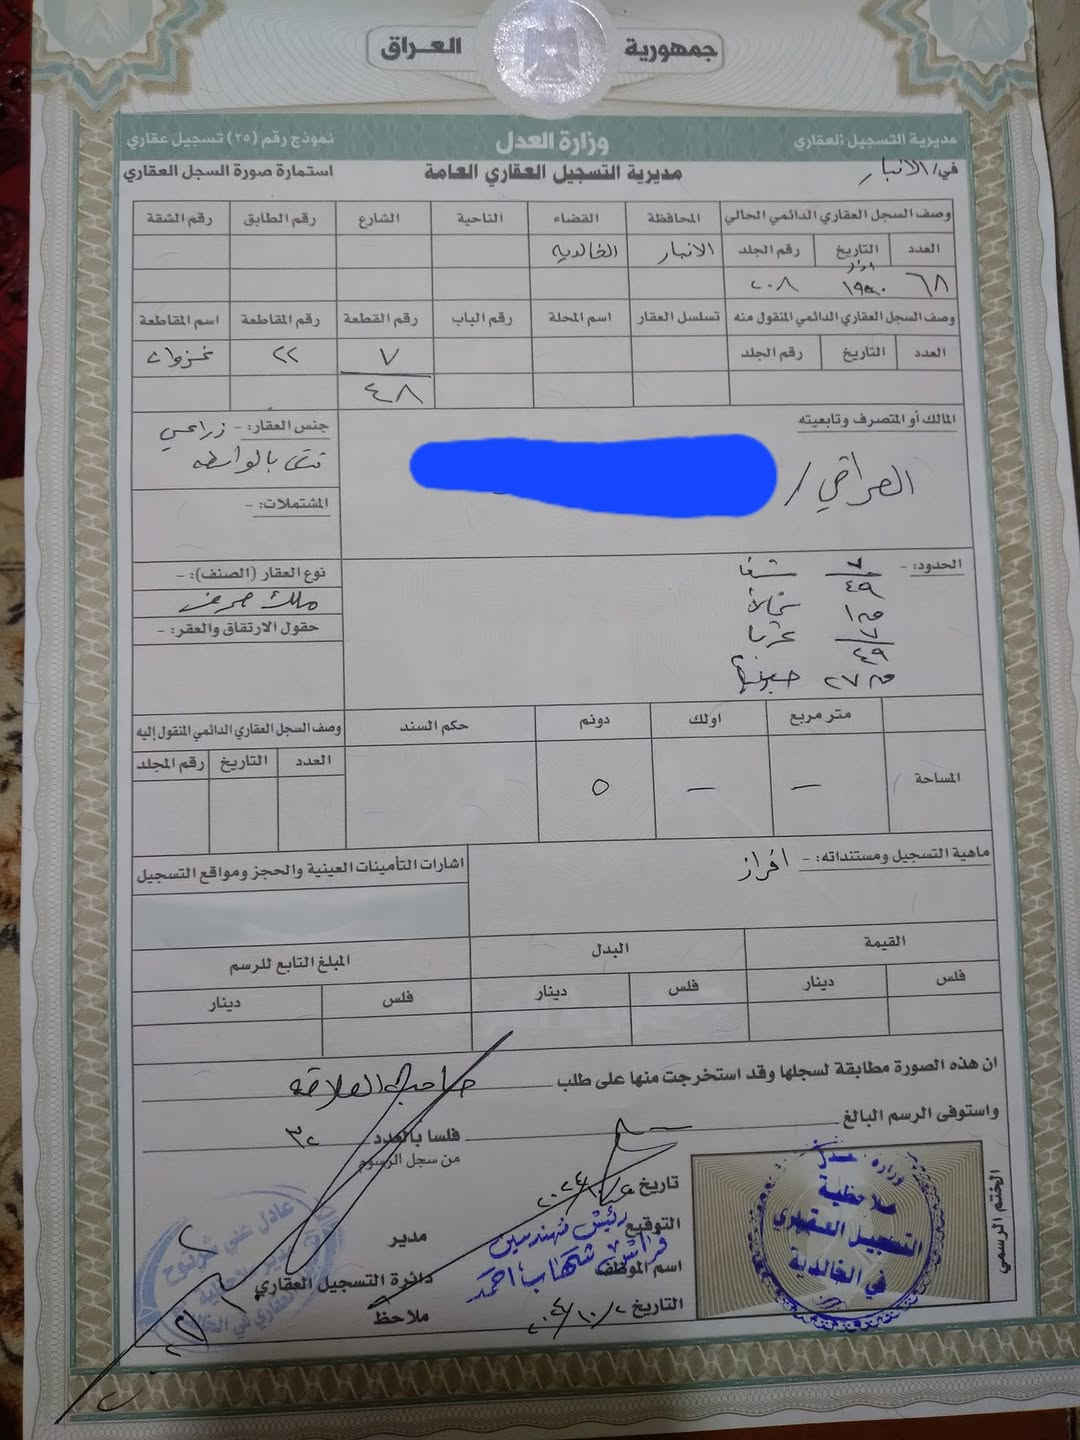 جمهورية العراق
مديرية التسجيل العقاري وزارة العدل نموذج رقم (٢٥) تسجيل عقاري
في/ الانبار مديرية التسجيل العقاري العامة استمارة صورة السجل العقاري
وصف السجل العقاري الدائمي الحالي المحافظة القضاء الناحية الشارع رقم الطابق رقم الشقة
العدد التاريخ رقم الجلد الانبار الخالديه
٦٨ ٢٠٨
وصف السجل العقاري الدائمي المنقول منه تسلسل العقار اسم المحلة رقم الباب رقم القطعة رقم المقاطعة اسم المقاطعة
العدد التاريخ رقم الجلد ٧ ٢٢
٤٨
المالك أو المتصرف وتابعيته جنس العقار: - زراعي
العراقي / تسقى بالواسطه
المشتملات: -
الحدود: - ٧ شرقا نوع العقار (الصنف): -
٤٩
١ شمالا ملك صرف
٧ غربا حقوق الارتفاق والعقر: -
٤٩
٢٧ جنوبا
متر مربع اولك دونم حكم السند وصف السجل العقاري الدائمي المنقول إليه
المساحة - - ٥ العدد التاريخ رقم المجلد
ماهية التسجيل ومستنداته: - افراز اشارات التأمينات العينية والحجز ومواقع التسجيل
القيمة البدل المبلغ التابع للرسم
فلس دينار فلس دينار فلس دينار
ان هذه الصورة مطابقة لسجلها وقد استخرجت منها على طلب صاحب العلاقه
واستوفى الرسم البالغ فلسا بالعدد ٣٢
من سجل الرسوم
تاريخ
التوقيع رئيس مهندسين مدير
اسم الموظف فراس شهاب احمد دائرة التسجيل العقاري
التاريخ ٢٠٢٤/١٠/٢ ملاحظ
الختم الرسمي
وزارة عدل
ملاحظية
التسجيل العقاري
في الخالدية